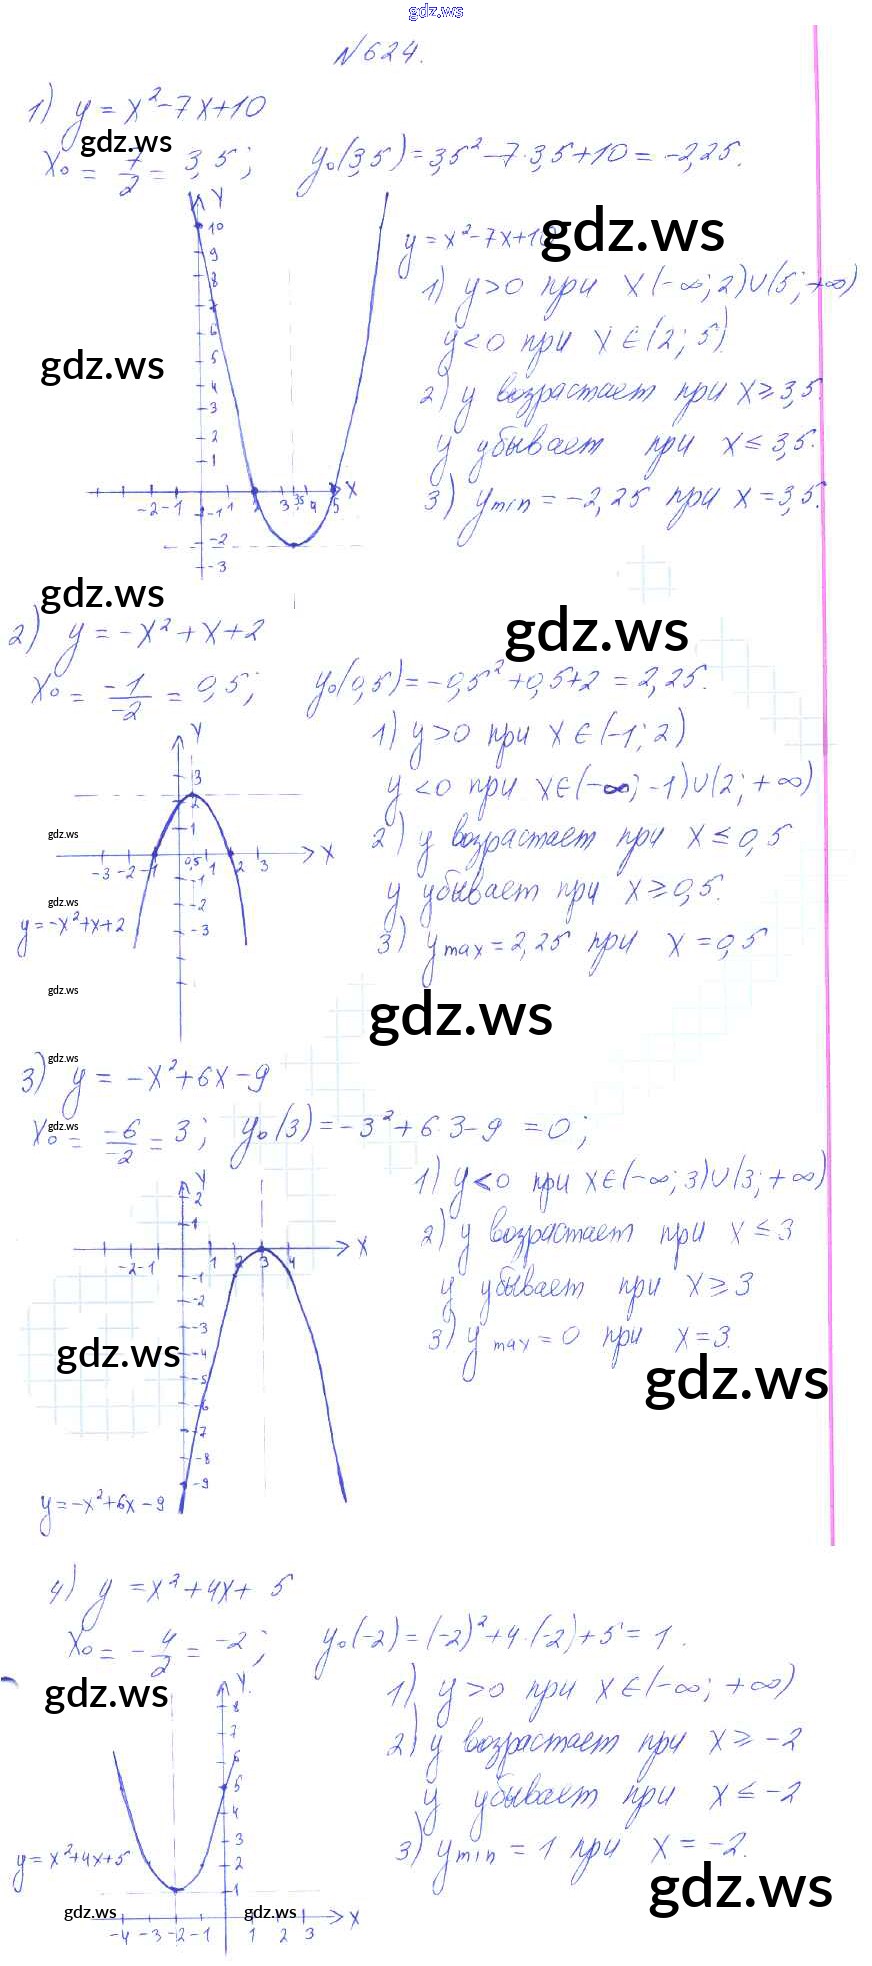 gdz.ws
№624.
1) y = x² - 7x + 10
gdz.ws
x₀ = 7/2 = 3,5; y₀(3,5) = 3,5² - 7·3,5 + 10 = -2,25.
Y
10
9
8
7
6
5
4
3
2
1
-2 -1 1 2 3 3,5 4 5 X
-1
-2
-3
y = x² - 7x + 10
gdz.ws
1) y > 0 при x (-∞; 2) ∪ (5; +∞)
y < 0 при x ∈ (2; 5)
gdz.ws
2) y возрастает при x ≥ 3,5.
y убывает при x ≤ 3,5.
3) y min = -2,25 при x = 3,5.
gdz.ws
gdz.ws
2) y = -x² + x + 2
x₀ = -1/-2 = 0,5; y₀(0,5) = -0,5² + 0,5 + 2 = 2,25.
Y
3
2
1
-3 -2 -1 0,5 1 2 3 X
-1
-2
-3
gdz.ws
gdz.ws
y = -x² + x + 2
1) y > 0 при x ∈ (-1; 2)
y < 0 при x ∈ (-∞; -1) ∪ (2; +∞)
2) y возрастает при x ≤ 0,5
y убывает при x ≥ 0,5.
3) y max = 2,25 при x = 0,5
gdz.ws
gdz.ws
gdz.ws
3) y = -x² + 6x - 9
gdz.ws
x₀ = -6/-2 = 3; y₀(3) = -3² + 6·3 - 9 = 0;
Y
2
1
-2 -1 1 2 3 4 X
-1
-2
-3
-4
-5
-6
-7
-8
-9
y = -x² + 6x - 9
1) y < 0 при x ∈ (-∞; 3) ∪ (3; +∞)
2) y возрастает при x ≤ 3
y убывает при x ≥ 3
3) y max = 0 при x = 3.
gdz.ws
gdz.ws
4) y = x² + 4x + 5
x₀ = -4/2 = -2; y₀(-2) = (-2)² + 4·(-2) + 5 = 1.
gdz.ws
Y
8
7
6
5
4
3
2
1
-4 -3 -2 -1 1 2 3 X
y = x² + 4x + 5
1) y > 0 при x ∈ (-∞; +∞)
2) y возрастает при x ≥ -2
y убывает при x ≤ -2
3) y min = 1 при x = -2.
gdz.ws
gdz.ws
gdz.ws